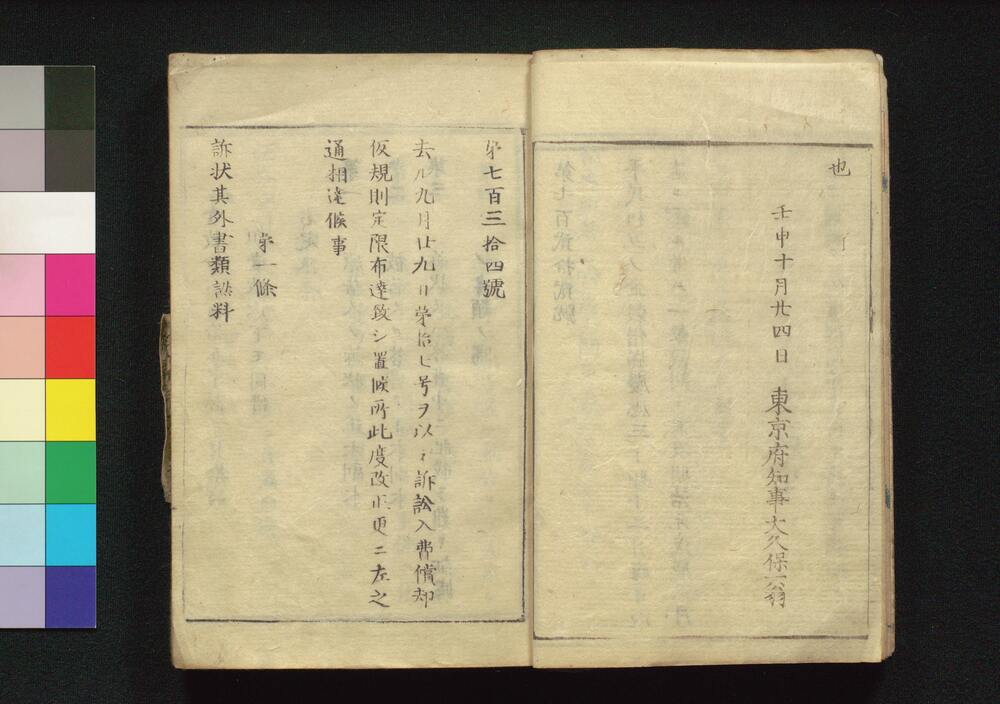 也
壬申十月廿四日 東京府知事大久保一翁
第七百三拾四號
去ル九月廿九日第拾七号ヲ以テ訴訟入費償却
仮規則定限布達致シ置候所此度改正更ニ左之
通相達候事
第一條
訴状其外書類認料